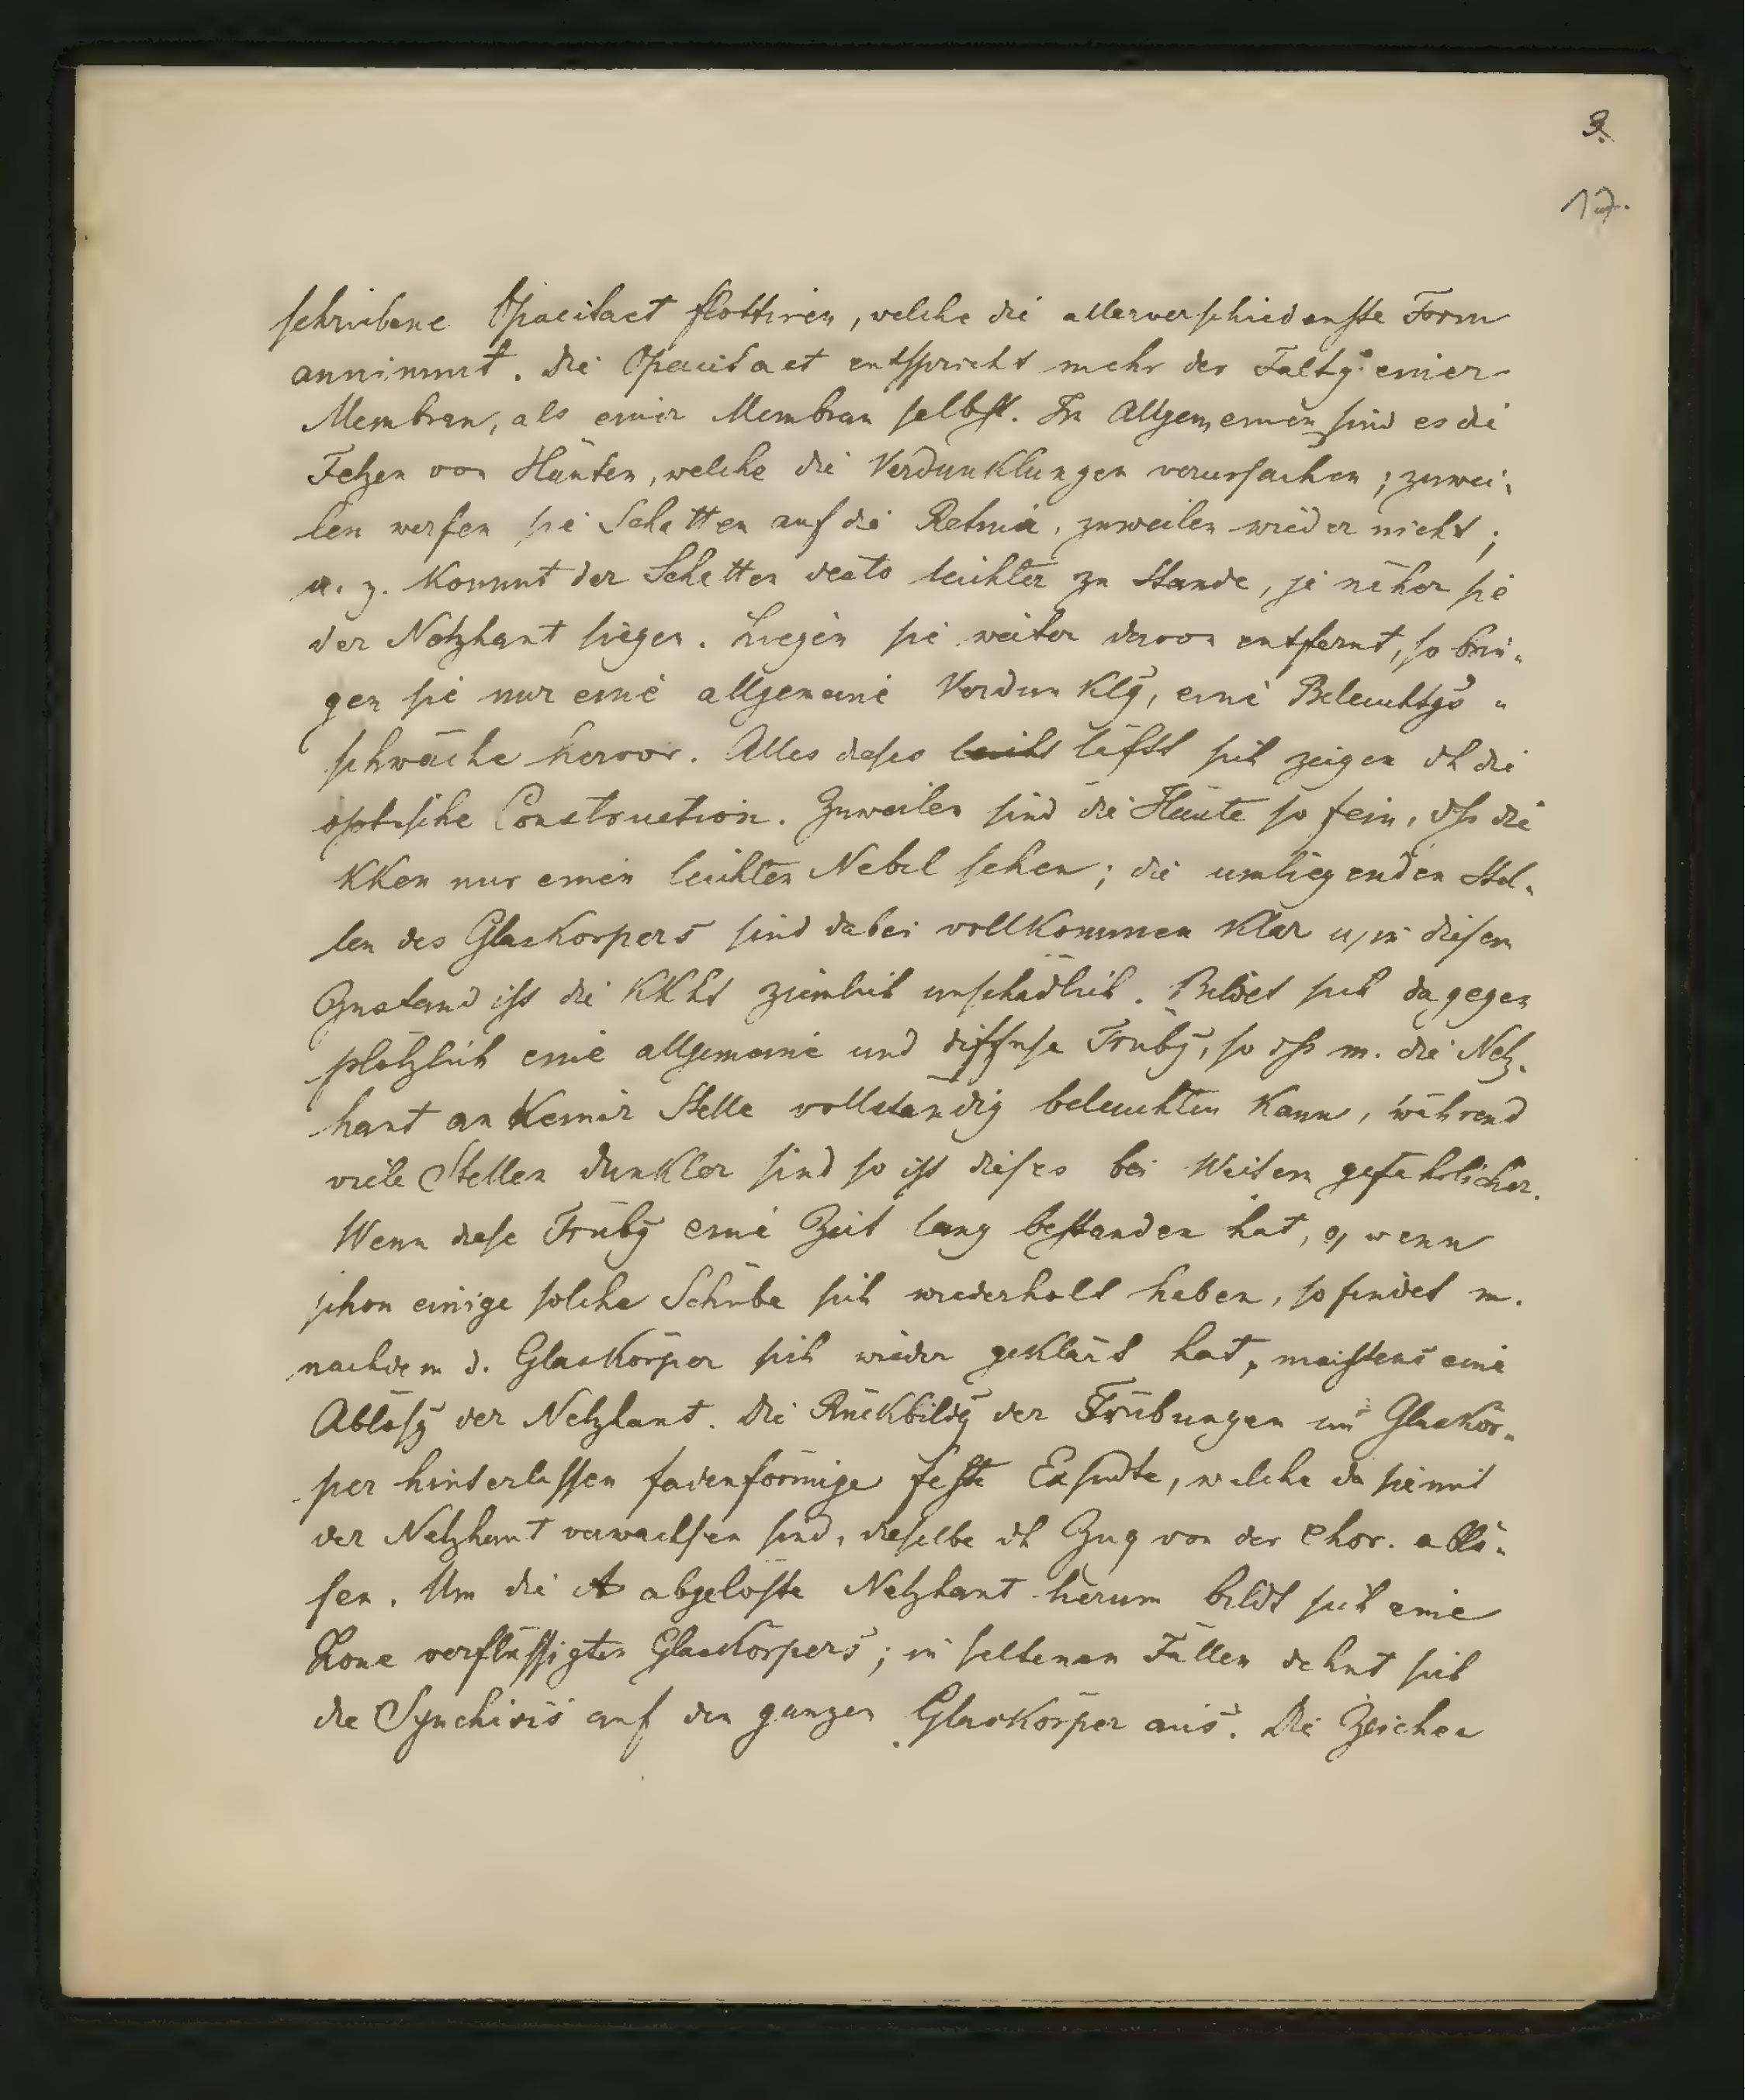 3.
17.
schriebene Opacitaet flottiren, welche die allerverschiedenste Form
annimmt. Die Opacitaet entspricht mehr der Faltg. einer
Membran, als einer Membran selbst. Im Allgemeinen sind es die
Fetzen von Häuten, welche die Verdunklungen verursachen; zuwei-
len werfen sie Schatten auf die Retina, zuweilen wieder nicht;
u. z. kommt der Schatten desto leichter zu Stande, je näher sie
der Netzhaut liegen. Liegen sie weiter davon entfernt, so brin-
gen sie nur eine allgemeine Verdunklg, eine Beleuchtgs-
schwäche hervor. Alles dieses leicht lässt sich zeigen dh die
optische Construction. Zuweilen sind die Häute so fein, dss die
KKen nur einen leichten Nebel sehen; die umliegenden Stel-
len des Glaskörpers sind dabei vollkommen klar u, in diesem
Zustand ist die KKht ziemlich unschädlich. Bildet sich dagegen
plötzlich eine allgemeine und diffuse Trübg, so dss m. die Netz-
haut an keiner Stelle vollständig beleuchten kann, während
viele Stellen dunkler sind so ist dieses bei Weitem gefährlicher.
Wenn diese Trübg eine Zeit lang bestanden hat, o, wenn
schon einige solche Schübe sich wiederholt haben, so findet m.
nachdem d. Glaskörper sich wieder geklärt hat, meistens eine
Ablösg der Netzhaut. Die Rückbildg der Trübungen im Glaskör-
per hinterlassen fadenförmige feste Exsudte, welche da sie mit
der Netzhaut verwachsen sind, dieselbe dh Zug von der Chor. ablö-
sen. Um die A abgelöste Netzhaut herum bildt sich eine
Zone verflüssigten Glaskörpers; in seltenen Fällen dehnt sich
die Synchisis auf den ganzen Glaskörper aus. Die Zeichen